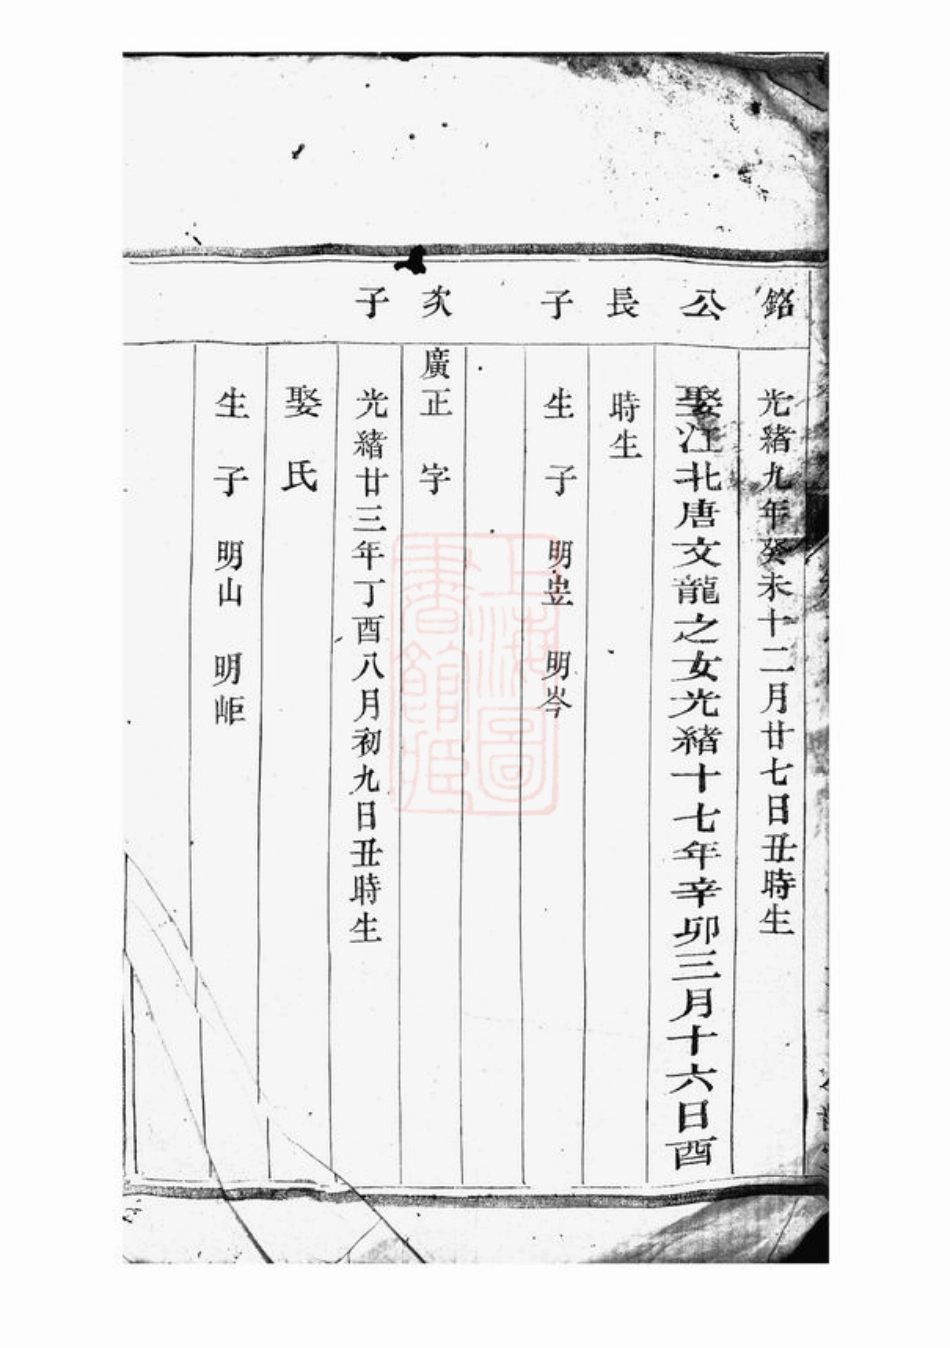 銘 光緒九年癸未十二月廿七日丑時生
公 娶江北唐文龍之女光緒十七年辛卯三月十六日酉
長 時生
子 生子 明岦 明岑
次 廣正 字
子 光緒廿三年丁酉八月初九日丑時生
娶氏
生子 明山 明岠
上海圖
書館藏